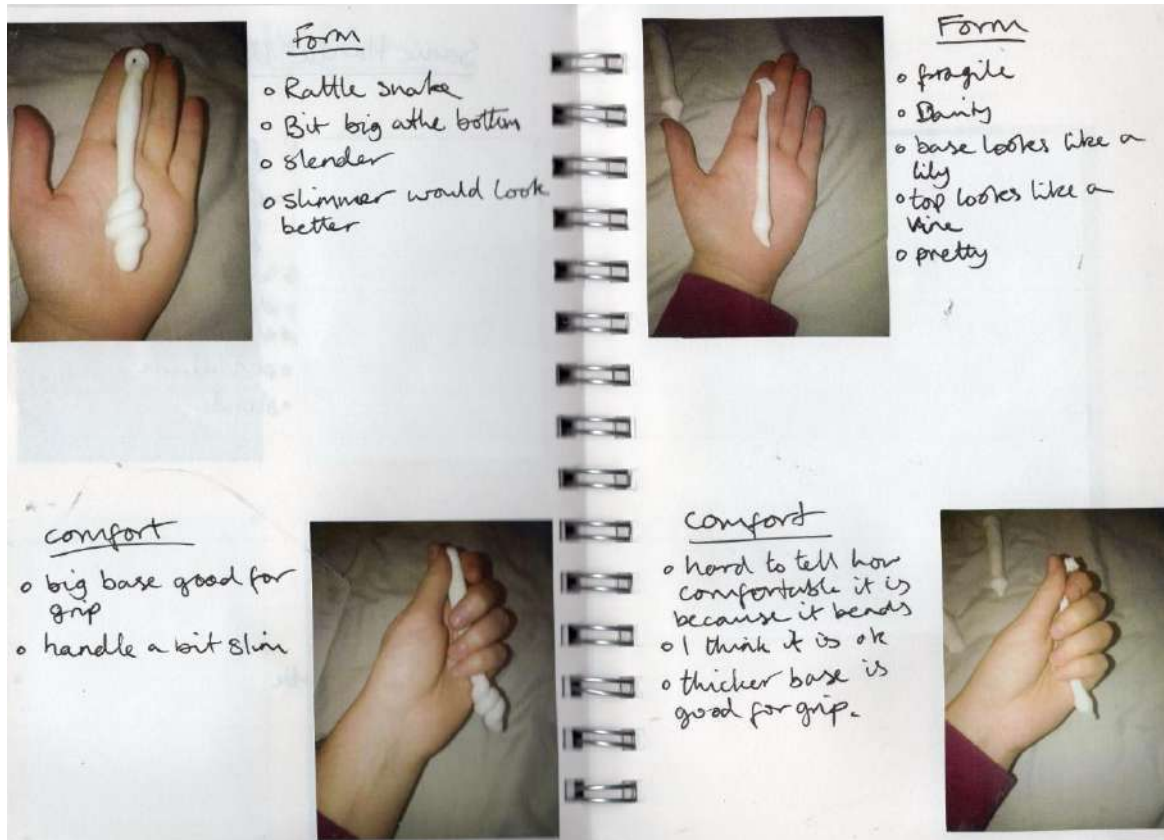 Form
o Rattle snake
o Bit big athe bottom
o slender
o slimmer would look
better
comfort
o big base good for
grip
o handle a bit slim
Form
o fragile
o Dainty
o base looks like a
lily
o top looks like a
vine
o pretty
comfort
o hard to tell how
comfortable it is
because it bends
o I think it is ok
o thicker base is
good for grip.